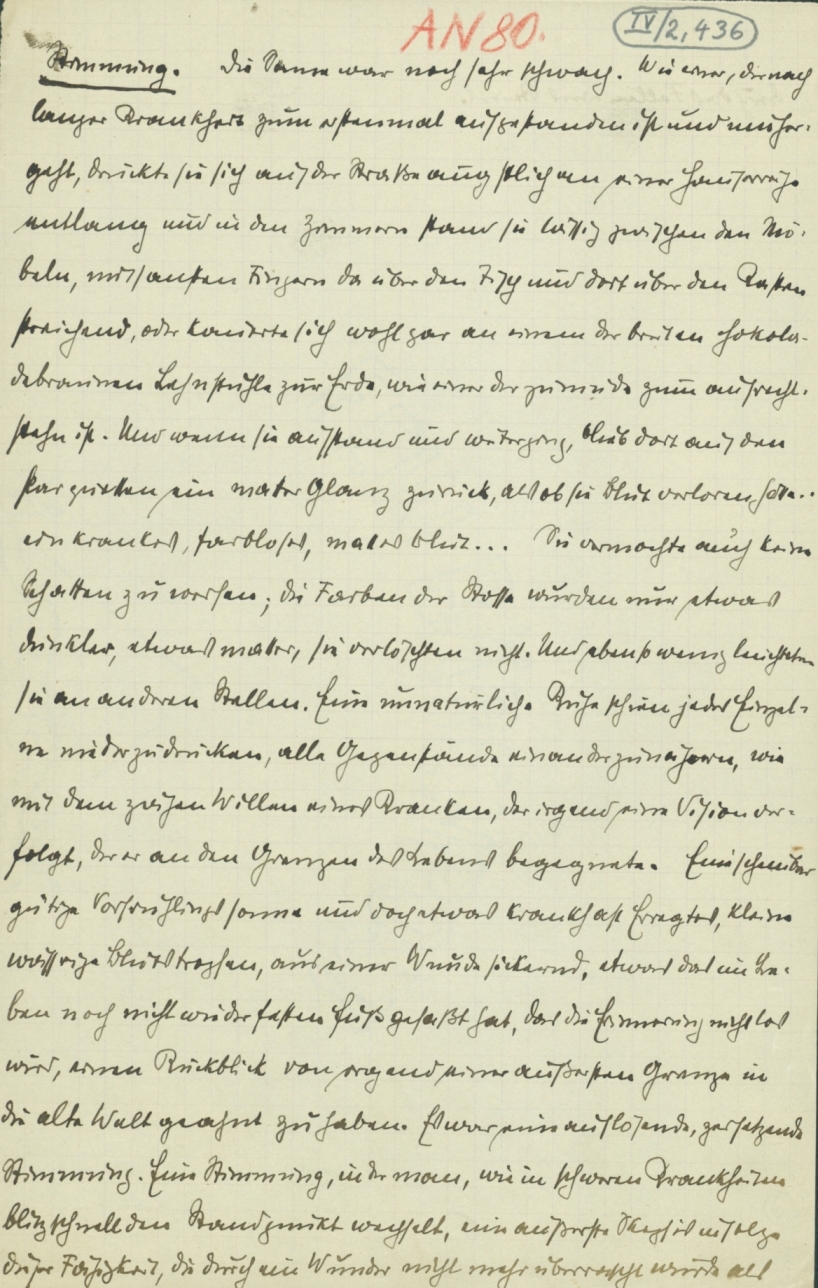 AN 80.
IV/2, 436
Stimmung. Die Sonne war noch sehr schwach. Wie einer, der nach
langer Krankheit zum erstenmal aufgestanden ist und umher-
geht, drückte sie sich auf der Straße ängstlich an einer Häuserreihe
entlang und in den Zimmern stand sie lässig zwischen den Mö-
beln, mit sanften Fingern da über den Tisch und dort über den Kasten
streichend, oder kauerte sich wohl gar an einem der breiten chokola-
debraunen Lehnstühle zur Erde, wie einer der zu müde zum aufrecht-
stehn ist. Und wenn sie aufstand und weiterging, blieb dort auf den
Parquetten ein mater Glanz zurück, als ob sie Blut verloren hätte..
ein krankes, farbloses, mates Blut... Sie vermochte auch keine
Schatten zu werfen; die Farben der Stoffe wurden nur etwas
dunkler, etwas mater, sie verlöschten nicht. Und ebenso wenig leuchteten
sie an anderen Stellen. Eine unnatürliche Ruhe schien jedes Einzel-
ne niederzudrücken, alle Gegenstände einander zu nähern, wie
mit dem zähen Willen eines Kranken, der irgend eine Vision ver-
folgt, der er an den Grenzen des Lebens begegnete. Eine scheinbar
gütige Vorfrühlingssonne und doch etwas krankhaft Erregtes, kleine
wässrige Blutstropfen, aus einer Wunde sickernd, etwas das im Le-
ben noch nicht wieder festen Fuß gefaßt hat, das die Erinnerung nicht los
wird, einen Rückblick von irgend einer äußersten Grenze in
die alte Welt geahnt zu haben. Es war eine auflösende, zersetzende
Stimmung. Eine Stimmung, in der man, wie in schweren Krankheiten
blitzschnell den Standpunkt wechselt, eine äußerste Skepsis infolge
dieser Fähigkeit, die durch ein Wunder nicht mehr überrascht würde als